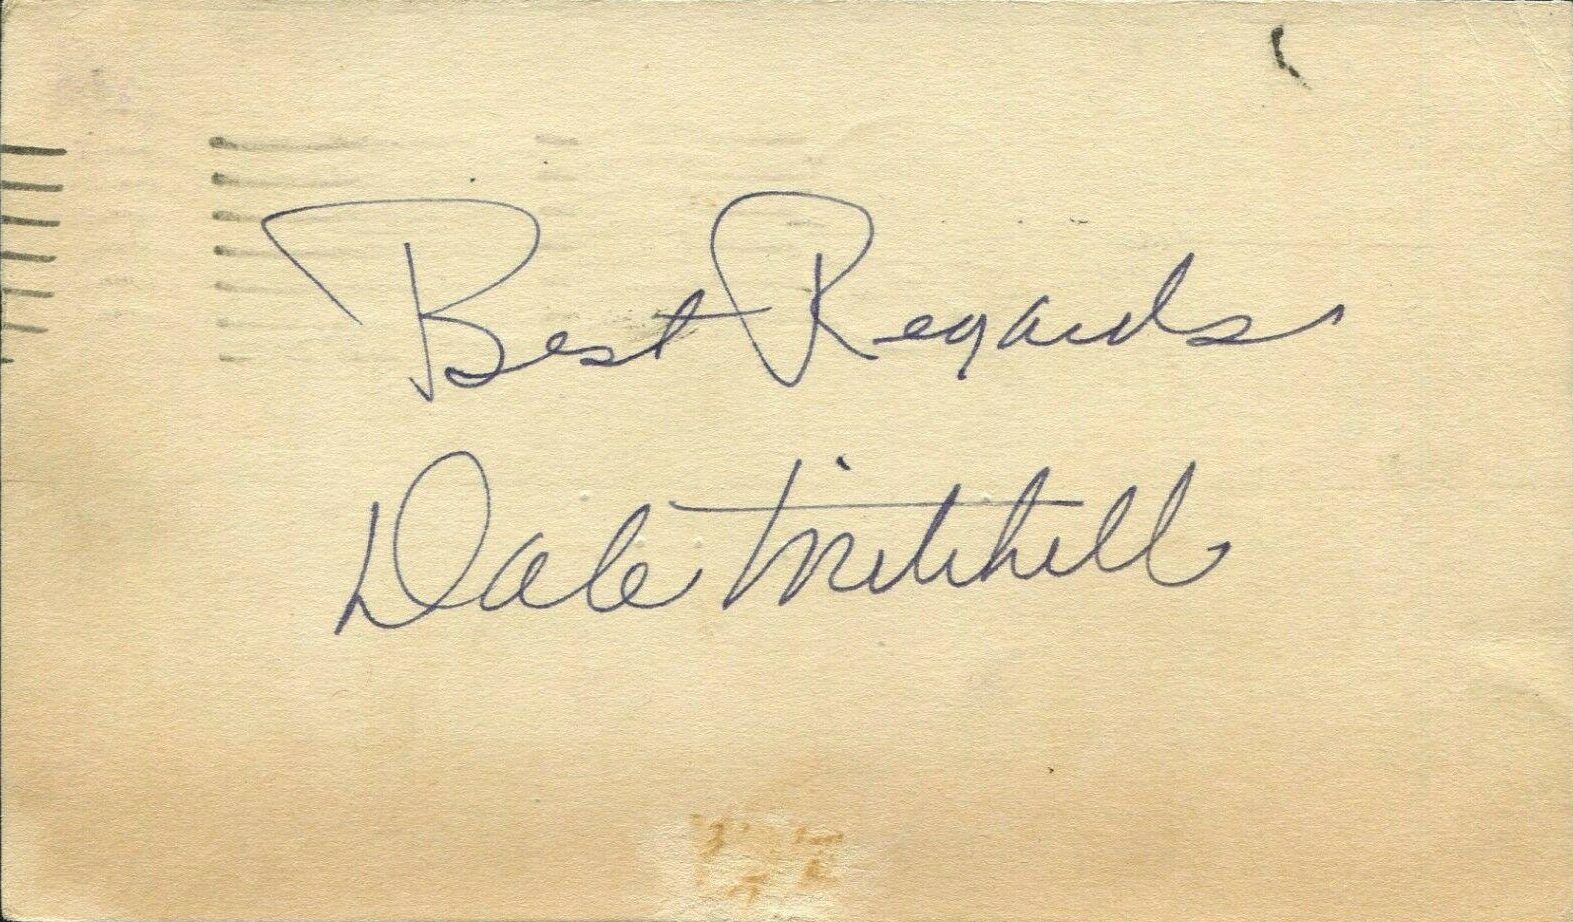 Best Regards
Dale Mitchell